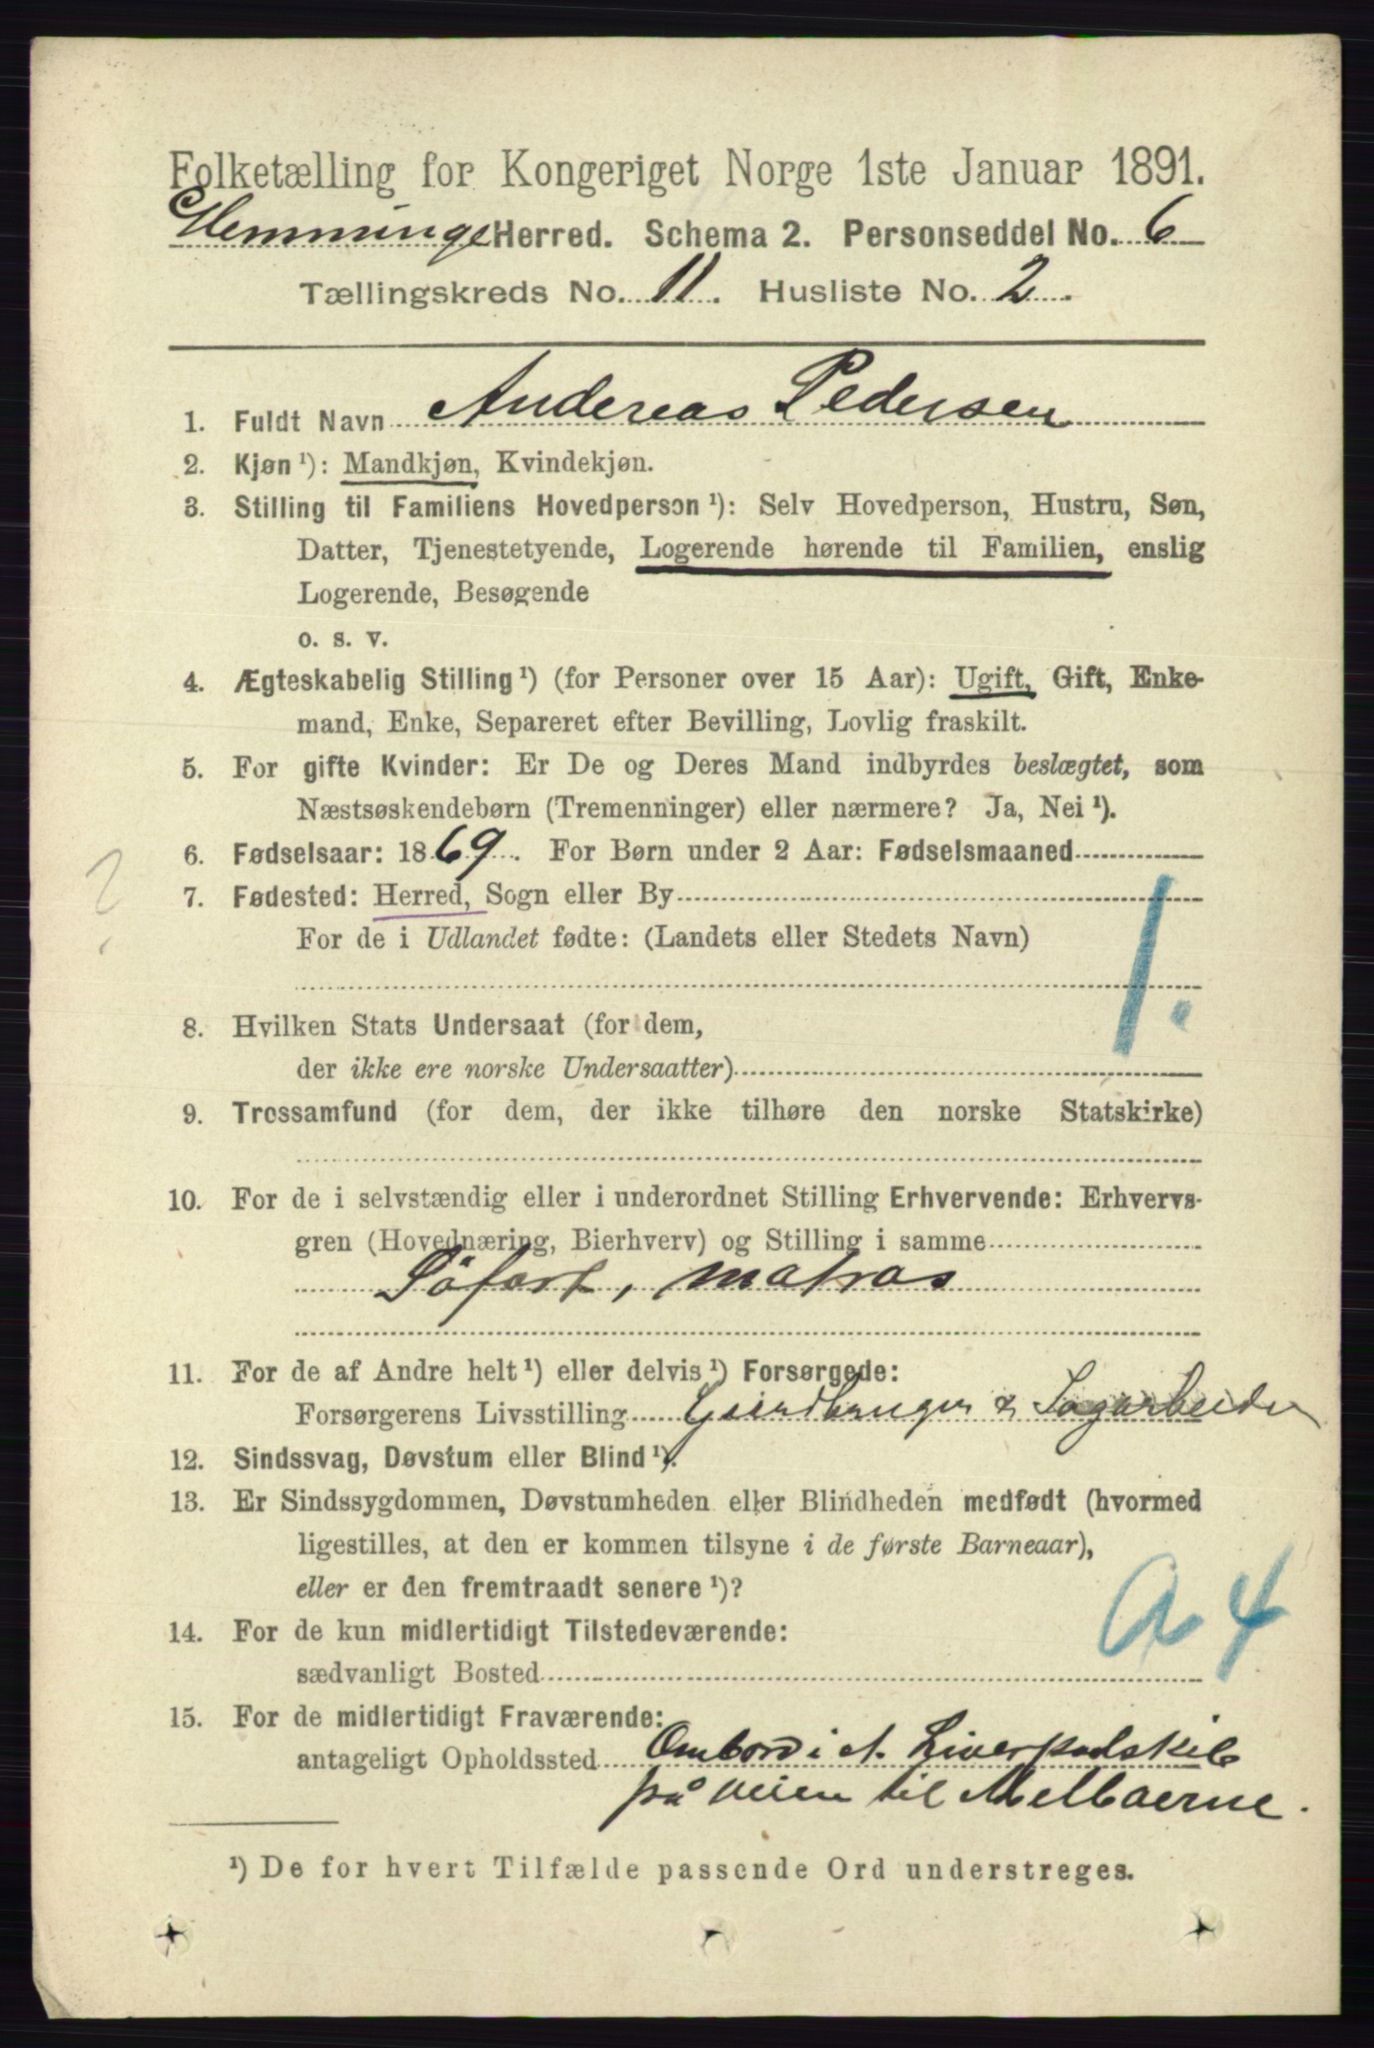 Folketælling for Kongeriget Norge 1ste Januar 1891.
Hemminge Herred. Schema 2. Personseddel No. 6
Tællingskreds No. 11. Husliste No. 2.
1. Fuldt Navn Andereas Pedersen
2. Kjøn ¹): Mandkjøn, Kvindekjøn.
3. Stilling til Familiens Hovedperson ¹): Selv Hovedperson, Hustru, Søn,
Datter, Tjenestetyende, Logerende hørende til Familien, enslig
Logerende, Besøgende
o. s. v.
4. Ægteskabelig Stilling ¹) (for Personer over 15 Aar): Ugift, Gift, Enke-
mand, Enke, Separeret efter Bevilling, Lovlig fraskilt.
5. For gifte Kvinder: Er De og Deres Mand indbyrdes beslægtet, som
Næstsøskendebørn (Tremenninger) eller nærmere? Ja, Nei ¹).
6. Fødselsaar: 1869. For Børn under 2 Aar: Fødselsmaaned
?
7. Fødested: Herred, Sogn eller By
For de i Udlandet fødte: (Landets eller Stedets Navn)
1.
8. Hvilken Stats Undersaat (for dem,
der ikke ere norske Undersaatter)
9. Trossamfund (for dem, der ikke tilhøre den norske Statskirke)
10. For de i selvstændig eller i underordnet Stilling Erhvervende: Erhvervs-
gren (Hovednæring, Bierhverv) og Stilling i samme
Söfart, matros
11. For de af Andre helt ¹) eller delvis ¹) Forsørgede:
Forsørgerens Livsstilling Gaardbruger & Sagarbeider
12. Sindssvag, Døvstum eller Blind ¹).
13. Er Sindssygdommen, Døvstumheden eller Blindheden medfødt (hvormed
ligestilles, at den er kommen tilsyne i de første Barneaar),
eller er den fremtraadt senere ¹)?
a 4
14. For de kun midlertidigt Tilstedeværende:
sædvanligt Bosted
15. For de midlertidigt Fraværende:
antageligt Opholdssted Ombord i et Liverpoolskib
på veien til Melboerne.
¹) De for hvert Tilfælde passende Ord understreges.